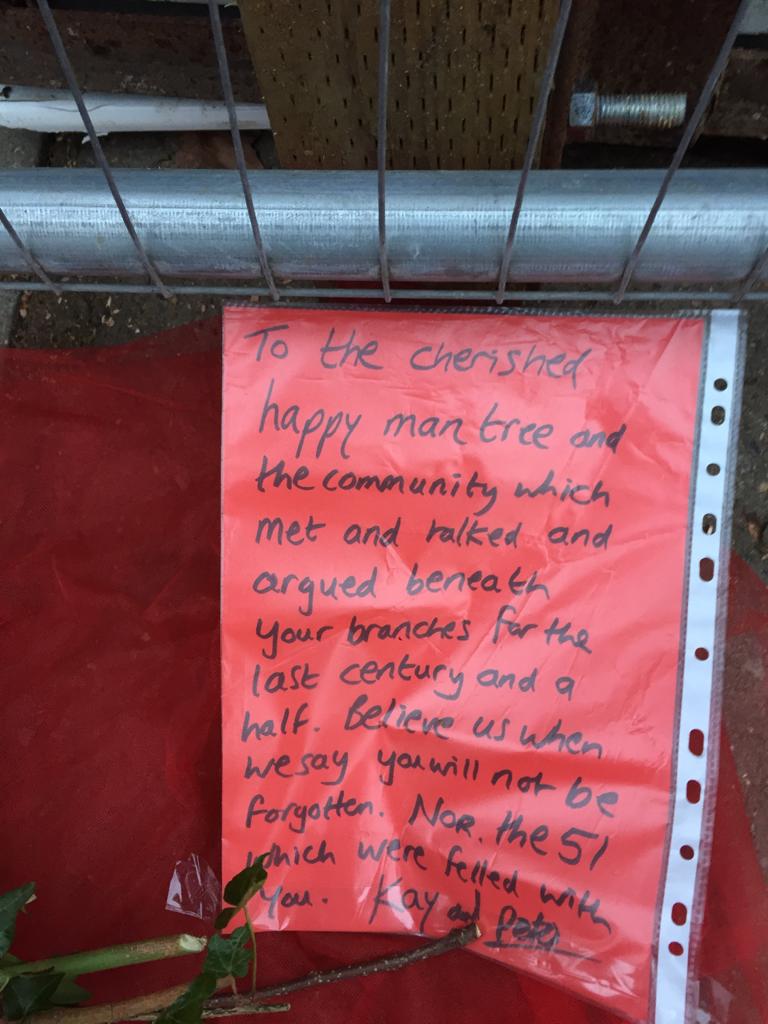 To the cherished
happy man tree and
the community which
met and talked and
argued beneath
your branches for the
last century and a
half. Believe us when
we say you will not be
forgotten. Nor. the 51
which were felled with
you. Kay and Peter